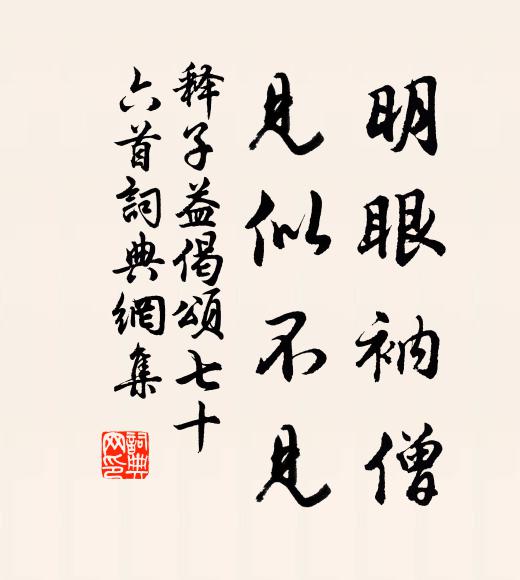 明眼衲僧
見似不見
释子益偈頌七十
六首詞典網集
詞典
网印